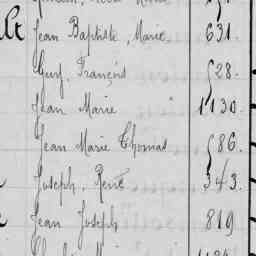 lt Jean Baptiste, Marie 631.
Guy, François 528.
Jean Marie 1130.
Jean Marie Thomas 586.
Joseph, René 343.
Jean Joseph 819